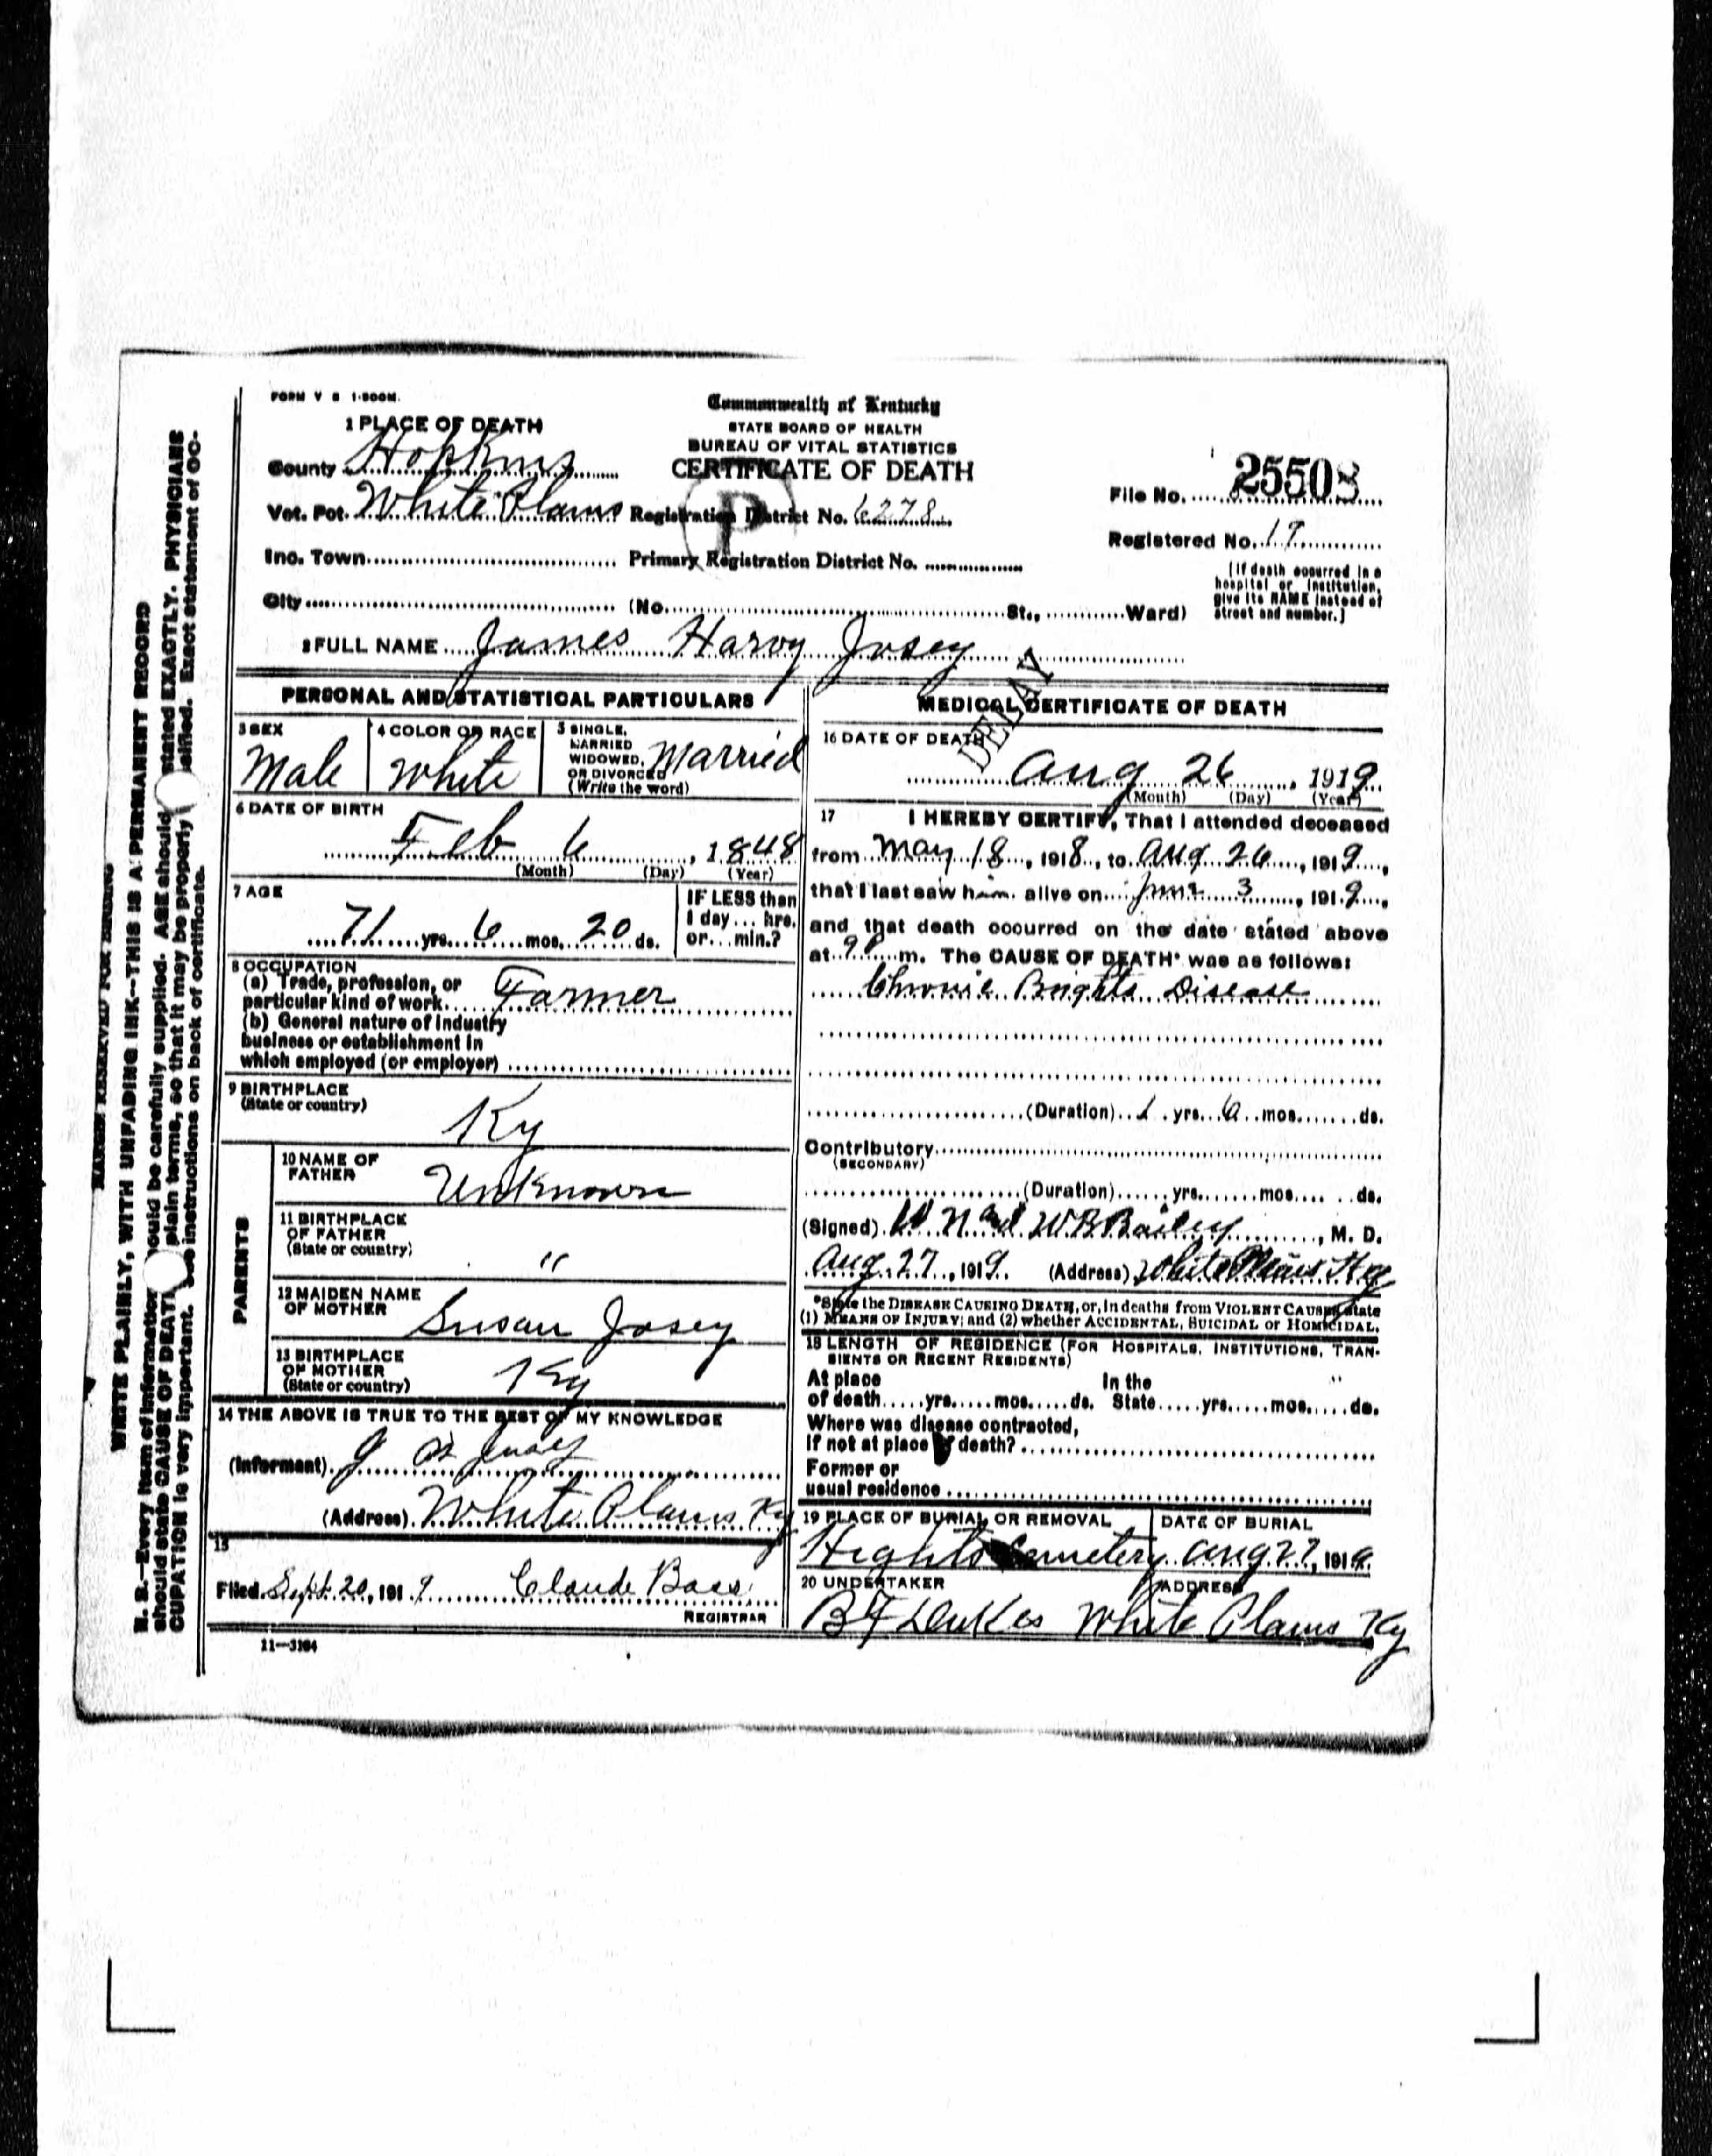 FORM V S 1-500M.
Commonwealth of Kentucky
STATE BOARD OF HEALTH
BUREAU OF VITAL STATISTICS
CERTIFICATE OF DEATH
1 PLACE OF DEATH
County Hopkins
Vot. Pct. White Plains Registration District No. 6278
File No. 25508
Registered No. 19
Inc. Town Primary Registration District No.
City (No. St., Ward)
(If death occurred in a hospital or institution, give its NAME instead of street and number.]
P
2 FULL NAME James Harvy Josey
DELAY
PERSONAL AND STATISTICAL PARTICULARS
3 SEX Male
4 COLOR OR RACE White
5 SINGLE, MARRIED WIDOWED, OR DIVORCED (Write the word) Married
6 DATE OF BIRTH
Feb 6, 1848
(Month) (Day) (Year)
7 AGE
71 yrs. 6 mos. 20 ds.
IF LESS than 1 day ... hrs. or ... min.?
8 OCCUPATION
(a) Trade, profession, or
particular kind of work. Farmer
(b) General nature of industry
business or establishment in
which employed (or employer)
9 BIRTHPLACE
(State or country)
Ky
PARENTS
10 NAME OF FATHER Unknown
11 BIRTHPLACE OF FATHER (State or country) "
12 MAIDEN NAME OF MOTHER Susan Josey
13 BIRTHPLACE OF MOTHER (State or country) Ky
14 THE ABOVE IS TRUE TO THE BEST OF MY KNOWLEDGE
(Informant)
(Address) White Plains Ky
15
Filed Sept. 20, 1919 Claude Bass
REGISTRAR
11—3184
MEDICAL CERTIFICATE OF DEATH
16 DATE OF DEATH
Aug 26, 1919
(Month) (Day) (Year)
17 I HEREBY CERTIFY, That I attended deceased
from May 18, 1918, to Aug 26, 1919,
that I last saw him alive on June 3, 1919,
and that death occurred on the date stated above
at 9 P m. The CAUSE OF DEATH* was as follows:
Chronic Brights Disease
(Duration) 1 yrs. 6 mos. ds.
Contributory
(SECONDARY)
(Duration) yrs. mos. ds.
(Signed) W. N. and W B Bailey, M. D.
Aug. 27, 1919. (Address) White Plains Ky
*State the DISEASE CAUSING DEATH, or, in deaths from VIOLENT CAUSES, state
(1) MEANS OF INJURY; and (2) whether ACCIDENTAL, SUICIDAL or HOMICIDAL.
18 LENGTH OF RESIDENCE (FOR HOSPITALS, INSTITUTIONS, TRAN-
SIENTS OR RECENT RESIDENTS)
At place of death yrs. mos. ds. In the State yrs. mos. ds.
Where was disease contracted,
if not at place of death?
Former or
usual residence
19 PLACE OF BURIAL OR REMOVAL DATE OF BURIAL
Hights Cemetery Aug 27, 1919
20 UNDERTAKER ADDRESS
B F Dukes White Plains Ky
MARGIN RESERVED FOR BINDING
WRITE PLAINLY, WITH UNFADING INK—THIS IS A PERMANENT RECORD
N. B.—Every item of information should be carefully supplied. AGE should stated EXACTLY. PHYSICIANS
should state CAUSE OF DEATH plain terms, so that it may be properly classified. Exact statement of OC-
CUPATION is very important. See instructions on back of certificate.